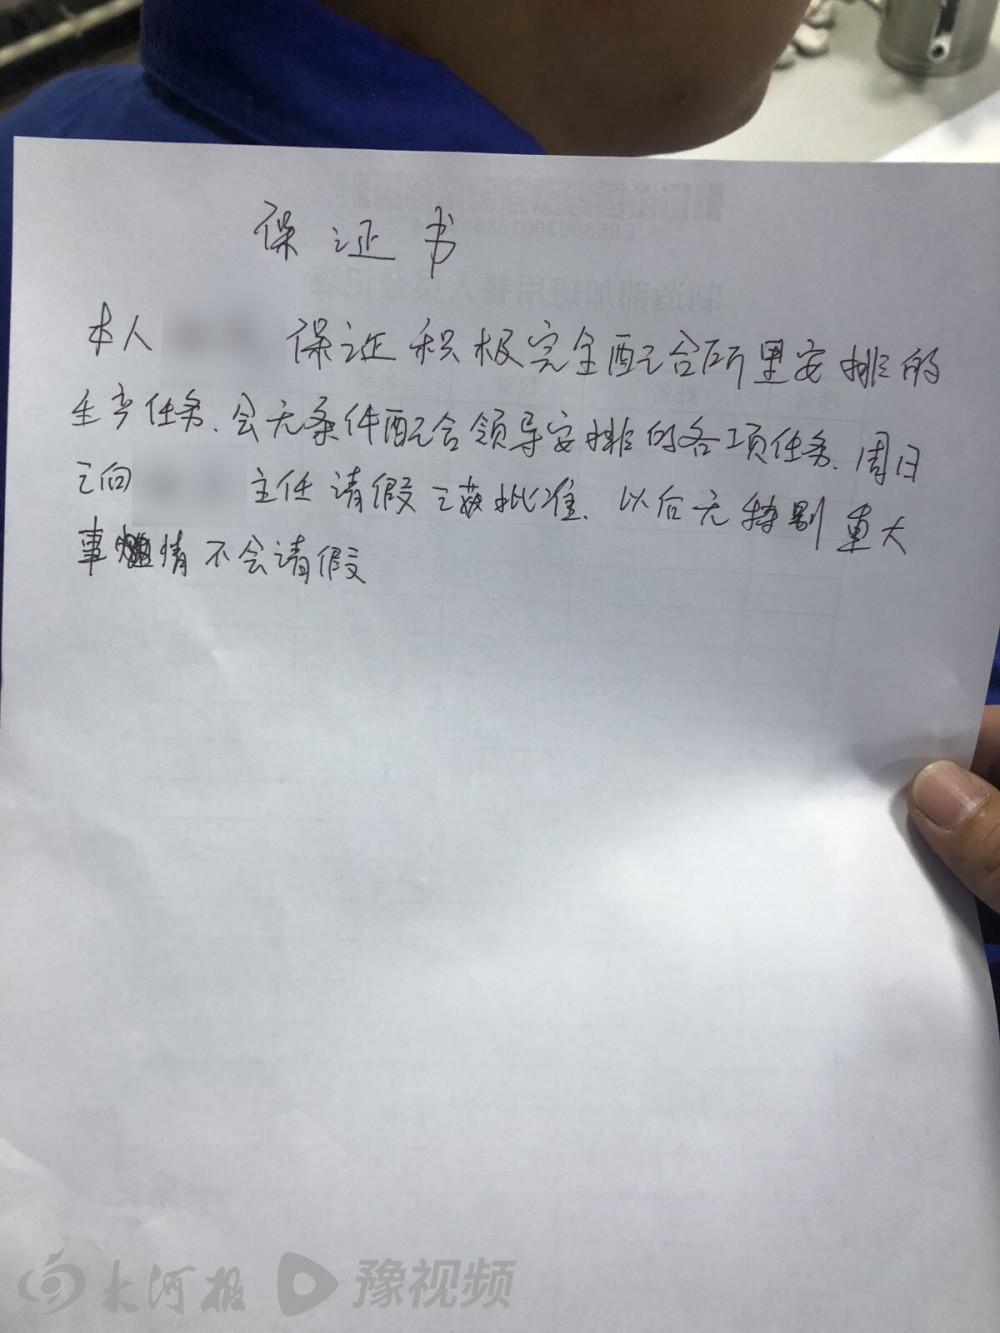 保证书
本人 保证积极完全配合所里安排的
生产任务、会无条件配合领导安排的各项任务、周日
已向 主任请假已获批准、以后无特别重大
事情不会请假
制造部加班用餐人员登记表
大河报 豫视频